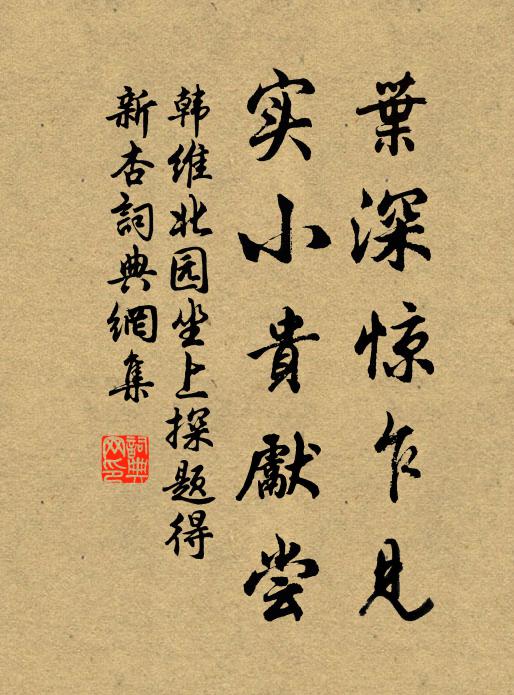 葉深惊乍見
实小貴獻尝
韩维北园坐上探题得
新杏詞典網集
詞典网印